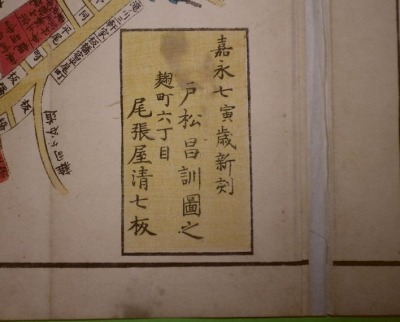 嘉永七寅歳新刻
戸松昌訓圖之
麹町六丁目
尾張屋清七板
雑司ヶ谷道